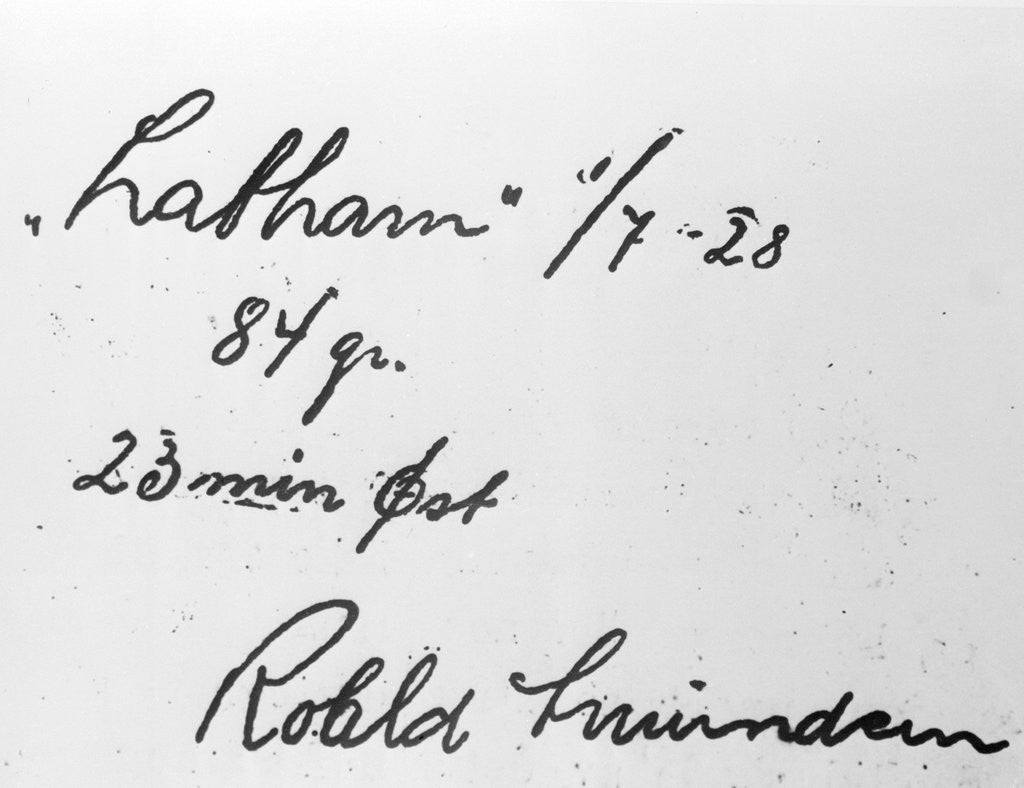 „Latham" 1/7-28
84 gr.
23 min Øst
Roald Amundsen